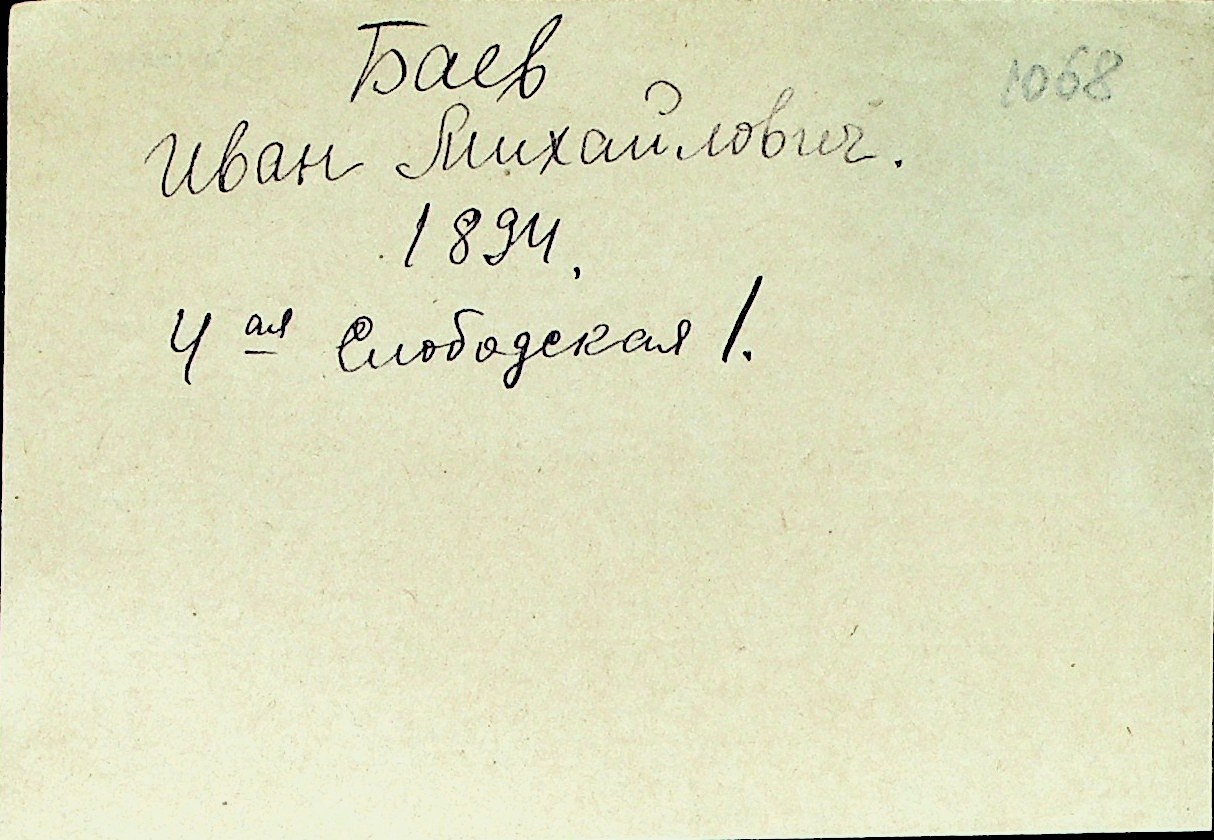 Баев
1068
Иван Михайлович.
1894.
4ая Слободская 1.